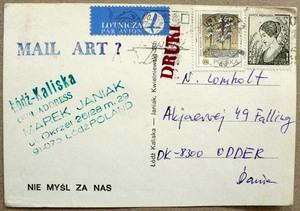 LOTNICZA
PAR AVION
MAIL ART ?
DRUKI
Łódź-Kaliska
OUR ADDRESS
MAREK JANIAK
ul. Okrzei 26/28 m. 29
ŁÓDŹ POLAND
N. Lomholt
49 Falling
DK-8300 ODDER
Dania
Łódź Kaliska — Janiak, Kwietniewski
NIE MYŚL ZA NAS